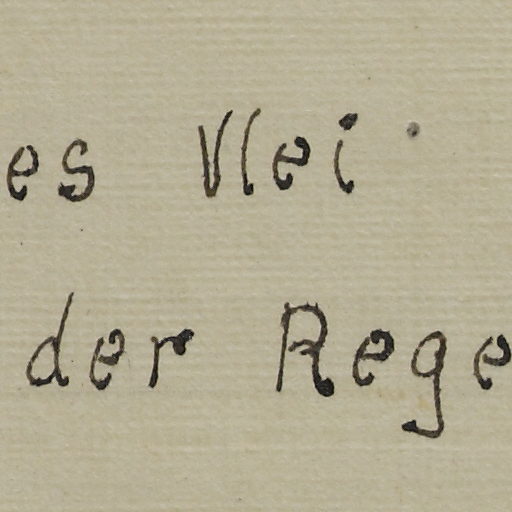 es Vlei
der Rege